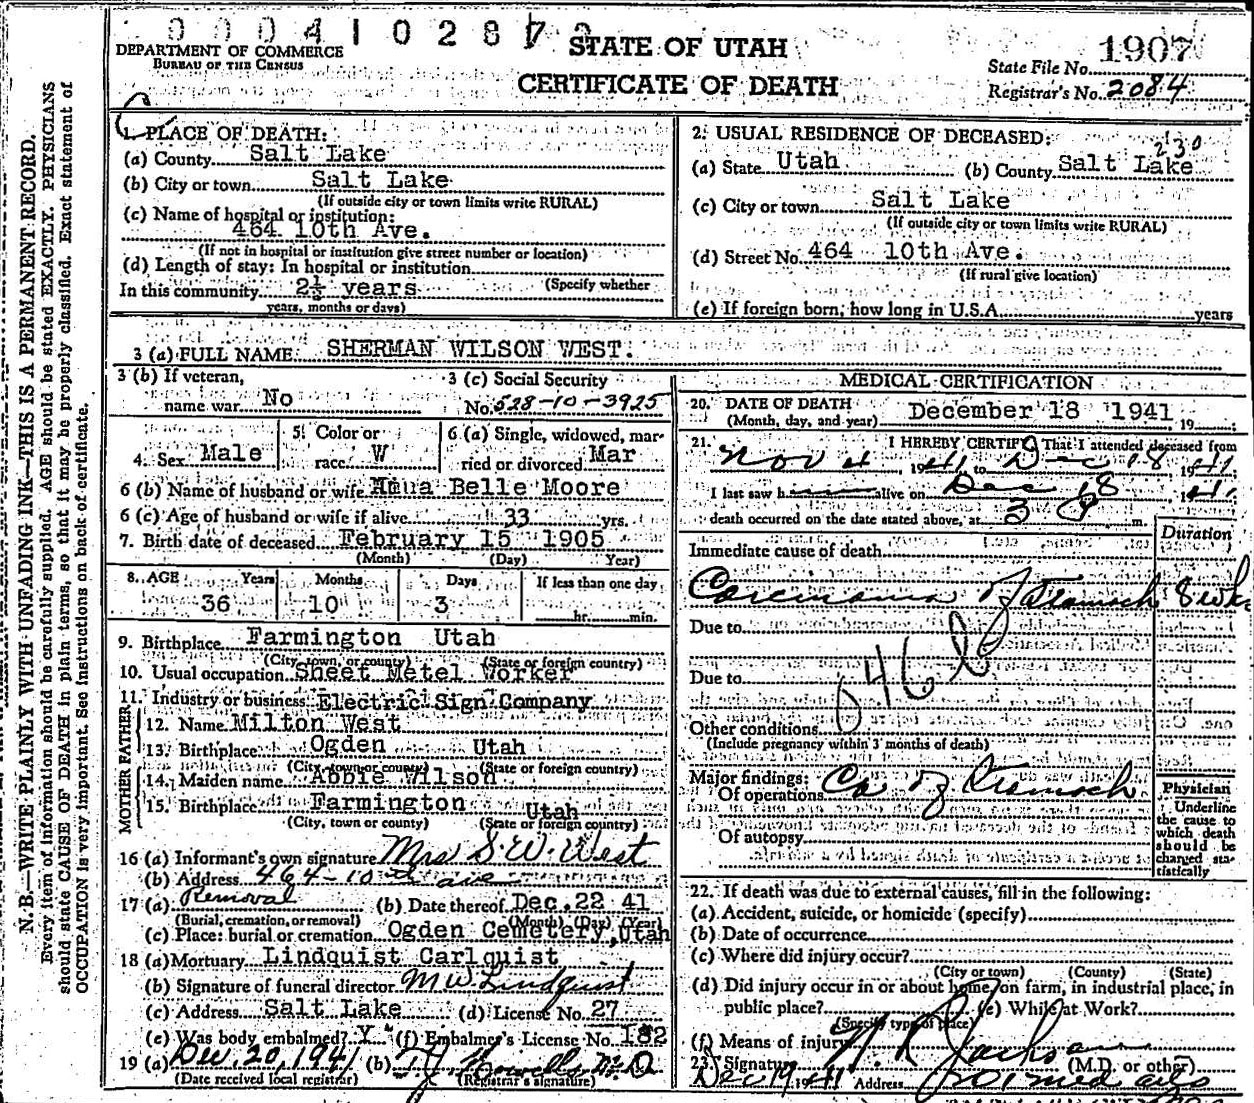 0004102870
DEPARTMENT OF COMMERCE
BUREAU OF THE CENSUS
STATE OF UTAH
CERTIFICATE OF DEATH
1907
State File No.
Registrar's No. 2084
N.B.—WRITE PLAINLY WITH UNFADING INK—THIS IS A PERMANENT RECORD.
Every item of information should be carefully supplied. AGE should be stated EXACTLY. PHYSICIANS
should state CAUSE OF DEATH in plain terms, so that it may be properly classified. Exact statement of
OCCUPATION is very important. See instructions on back of certificate.
1. PLACE OF DEATH:
(a) County Salt Lake
(b) City or town Salt Lake
(If outside city or town limits write RURAL)
(c) Name of hospital or institution:
464 10th Ave.
(If not in hospital or institution give street number or location)
(d) Length of stay: In hospital or institution
(Specify whether
In this community 2½ years
years, months or days)
2. USUAL RESIDENCE OF DECEASED:
230
(a) State Utah (b) County Salt Lake
(c) City or town Salt Lake
(If outside city or town limits write RURAL)
(d) Street No. 464 10th Ave.
(If rural give location)
(e) If foreign born, how long in U.S.A. years
3 (a) FULL NAME SHERMAN WILSON WEST.
3 (b) If veteran,
name war No
3 (c) Social Security
No. 528-10-3925
4. Sex Male
5. Color or
race W
6 (a) Single, widowed, mar-
ried or divorced Mar
6 (b) Name of husband or wife Belle Moore
6 (c) Age of husband or wife if alive 33 yrs.
7. Birth date of deceased February 15 1905
(Month) (Day) Year)
8. AGE Years Months Days If less than one day
36 10 3 hr. min.
9. Birthplace Farmington Utah
(City, town, or county) (State or foreign country)
10. Usual occupation Sheet Metel Worker
11. Industry or business Electric Sign Company
FATHER
12. Name Milton West
13. Birthplace Ogden Utah
(City, town or county) (State or foreign country)
MOTHER
14. Maiden name Abbie Wilson
15. Birthplace Farmington Utah
(City, town or county) (State or foreign country)
16 (a) Informant's own signature Mrs S. W. West
(b) Address 464-10th ave
17 (a) Removal (b) Date thereof Dec. 22 41
(Burial, cremation, or removal) (Month) (Day) (Year)
(c) Place: burial or cremation Ogden Cemetery, Utah
18 (a) Mortuary Lindquist Carlquist
(b) Signature of funeral director M W Lindquist
(c) Address Salt Lake (d) License No. 27
(e) Was body embalmed? Y (f) Embalmer's License No. 182
19 (a) Dec. 20, 1941 (b) M. D
(Date received local registrar) (Registrar's signature)
MEDICAL CERTIFICATION
20. DATE OF DEATH
(Month, day, and year) December 18 1941, 19
21. I HEREBY CERTIFY That I attended deceased from
Nov 4, 1941 to Dec 18 1941
I last saw h alive on Dec 18 1941.
death occurred on the date stated above, at 3 P m.
Duration
Immediate cause of death
Carcinoma of Stomach 8 wks
Due to
Due to
046b
Other conditions
(Include pregnancy within 3 months of death)
Major findings:
Of operations Ca of Stomach
Of autopsy
Physician
Underline
the cause to
which death
should be
charged sta-
tistically
22. If death was due to external causes, fill in the following:
(a) Accident, suicide, or homicide (specify)
(b) Date of occurrence
(c) Where did injury occur?
(City or town) (County) (State)
(d) Did injury occur in or about home, on farm, in industrial place, in
public place? (e) While at Work?
(Specify type of place)
(f) Means of injury
23. Signature Jackson (M.D. or other)
Dec 19 1941 Address 701 Med arts